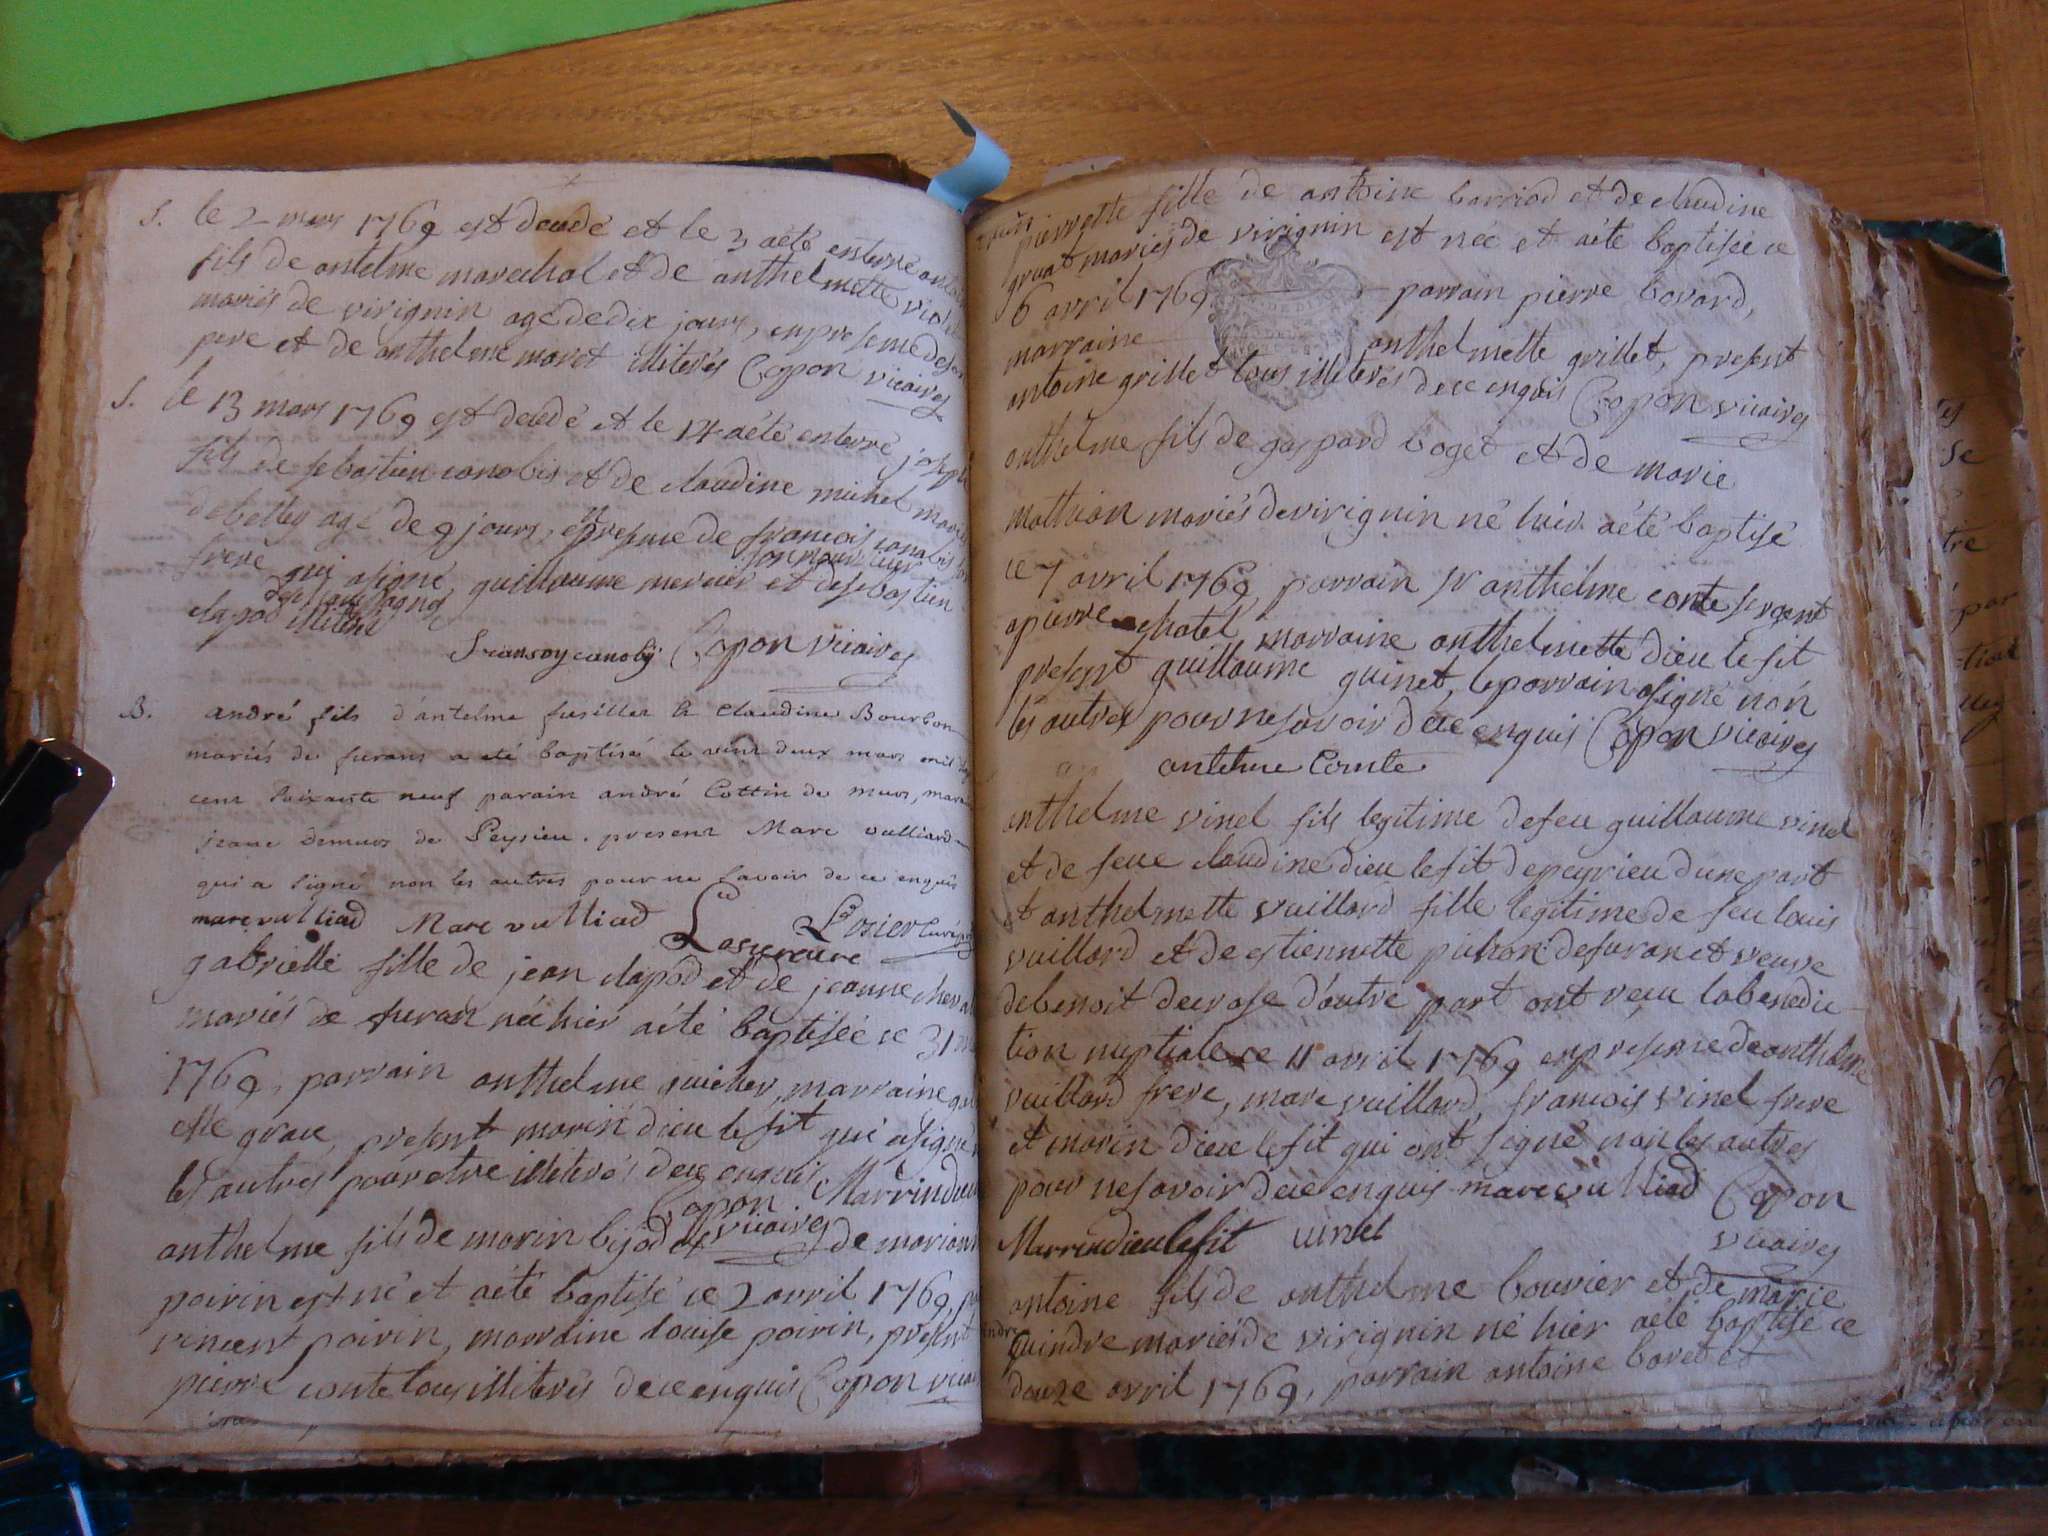 S. le 2 mars 1769 est decedé et le 3 aété enterré
fils de antelme marechal et de anthelmette
mariés de virignin agé de dix jours, en presence de son
pere et de anthelme moret illiterés Copon vicaires
S. le 13 mars 1769 est decedé et le 14 aété enterré joseph
fils de sebastien canobis et de claudine michel mariés
debelley agé de 9 jours, en presence de francois canobis
frere qui asigné, guillaume mercier et de sebastien
clapod illiteré
Copon vicaires
B. andré fils d'antelme fusillet & claudine Bourbon
mariés de furans a eté baptisé le vint deux mars mil
cent soixante neuf parain andré Cottin de murs,
jeane Demurs de Peysieu. present Marc vulliard
qui a signé non les autres pour ne savoir de ce enquis
marc vulliad Marc vulliad Losier curé
Losier curé
gabrielle fille de jean clapod et de jeanne
mariés de furan néé hier aété baptisée ce 31
1769, parrain anthelme guicher, marraine
elle grace, present marin dieu le fit qui asigné
les autres pour etre illiterés dece enquis Marrin dieu
Copon
vicaires
anthelme fils de marin bijod et de
poirin est né et aété baptisé ce 2 avril 1769,
vincent poirin, marraine louise poirin, present
pierre conte tous illiterés dece enquis Copon
pierrette fille de antoine barriod et de claudine
gruat mariés de virignin est néé et aété baptisée ce
6 avril 1769 parrain pierre bovard,
marraine anthelmette grillet, present
antoine grillet tous illiterés dece enquis Copon vicaires
anthelme fils de gaspard boget et de marie
mathion mariés de virignin né hier aété baptisé
ce 7 avril 1769, parrain sr anthelme conte sergent
apierre chatel, marraine anthelmette dieu le fit
present guillaume guinet, le parrain asigné non
les autres pour ne savoir dece enquis Copon vicaires
antelme Comte
anthelme vinel fils legitime de feu guillaume vinel
et de feue claudine dieu le fit de peyrieu dune part
et anthelmette vuillard fille legitime de feu louis
vuillard et de estiennette pichon de furan et veuve
de benoit decrose d'autre part ont recu la benedic-
tion nuptiale ce 11 avril 1769 en presence de anthelme
vuillard frere, marc vuillard, francois vinel frere
et marin dieu le fit qui ont signé non les autres
pour ne savoir dece enquis marc vulliad Copon
Marrin dieu le fit vinel vicaires
antoine fils de anthelme bouvier et de marie
quindre mariés de virignin né hier aété baptisé ce
douze avril 1769, parrain antoine